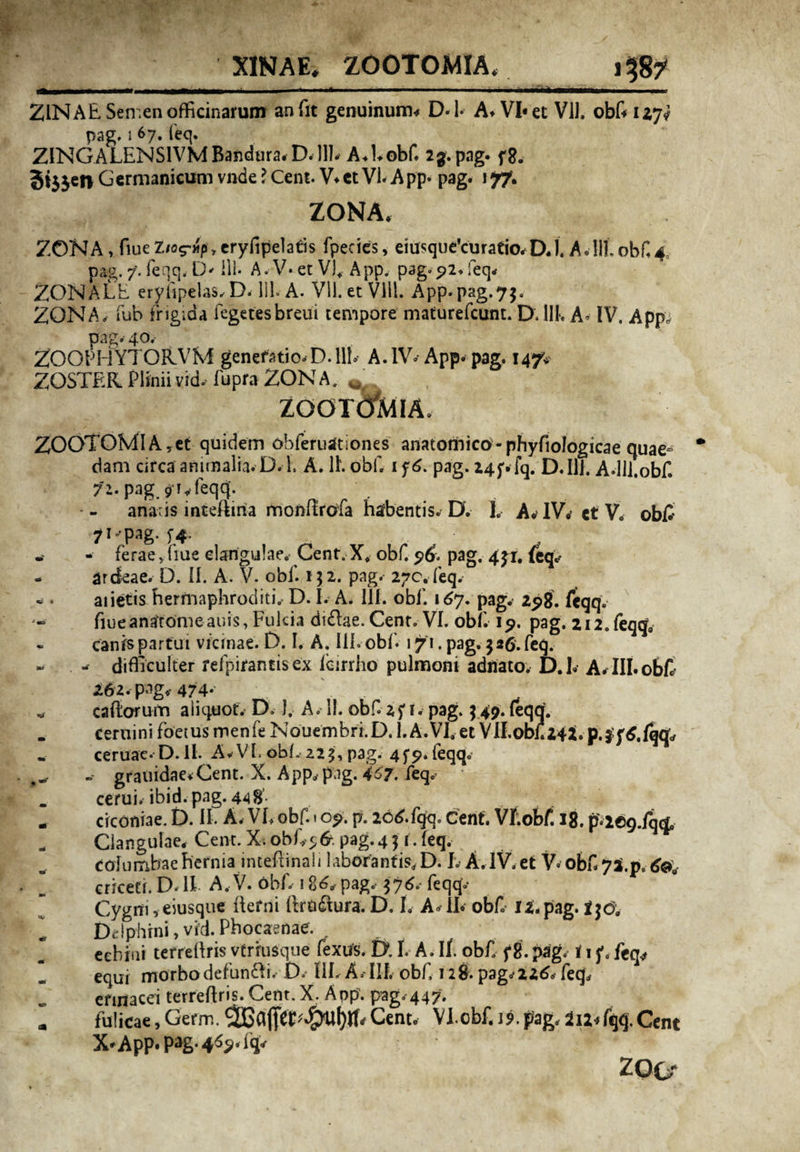 XINAE. ZOOTOMIA. 1387
ZINAE Semen officinarum an fit genuinum. D. I. A. VI. et VII. obf. 127.
pag. 167. feq.
ZINGALENSIVM Bandura. D. III. A. I. obf. 2g. pag. 58.
Zizzen Germanicum vnde? Cent. V. et VI. App. pag. 177.
ZONA.
ZONA, fiue Ζωςὴρ, eryfipelatis fpecies, eiusque curatio. D. I. A. III. obf. 4.
pag. 7. feqq. D. III. A. V. et VI. App. pag. 92. feq.
ZONALE eryfipelas. D. III. A. VII. et VIII. App. pag. 73.
ZONA, fub frigida fegetes breui tempore maturefcunt. D. III. A. IV. App.
pag. 40.
ZOOPHYTORVM generatio. D. III. A. IV. App. pag. 147.
ZOSTER Plinii vid. fupra ZONA.
ZOOTOMIA.
ZOOTOMIA, et quidem obferuationes anatomico-phyfiologicae quae-
dam circa animalia. D. I. A. II. obf. 156. pag. 245. fq. D. III. A. III. obf.
72. pag. 91. feqq.
- anatis inteftina monftrofa habentis. D. I. A. IV. et V. obf.
71. pag. 54.
- ferae, fiue clangulae. Cent. X. obf. 56. pag. 451. feq.
- ardeae. D. II. A. V. obf. 132. pag. 270. feq.
- arietis hermaphroditi. D. I. A. III. obf. 167. pag. 298. feqq.
- fiue anatome auis, Fulcia dictae. Cent. VI. obf. 19. pag. 212. feqq.
- canis partui vicinae. D. I. A. III. obf. 171. pag. 326. feq.
- - difficulter refpirantis ex fcirrho pulmoni adnato. D. I. A. III. obf.
262. pag. 474.
- caftorum aliquot. D. I. A. II. obf. 251. pag. 349. feqq.
- ceruini foetus menfe Nouembri. D. I. A. VI. et VII. obf. 242. p. 356. fqq.
- ceruae. D. II. A. VI. obf. 223. pag. 459. feqq.
- - grauidae. Cent. X. App. pag. 467. feq.
- cerui. ibid. pag. 448.
- ciconiae. D. II. A. VI. obf. 109. p. 206. fqq. Cent. VI. obf. 18. p. 209. fqq.
- Clangulae. Cent. X. obf. 56. pag. 431. feq.
- columbae hernia inteftinali laborantis. D. I. A. IV. et V. obf. 72. p. 60.
- criceti. D. II. A. V. obf. 186. pag. 376. feqq.
- Cygni, eiusque fterni ftructura. D. I. A. II. obf. 12. pag. 130.
- Delphini, vid. Phocaenae.
- echini terreftris vtriusque fexus. D. I. A. II. obf. 58. pag. 115. feq.
- equi morbo defuncti. D. III. A. III. obf. 128. pag. 226. feq.
- erinacei terreftris. Cent. X. App. pag. 447.
- fulicae, Germ. Waffer-Huhn. Cent. VI. obf. 19. pag. 212. fqq. Cent
X. App. pag. 469. fq.
ZOO-